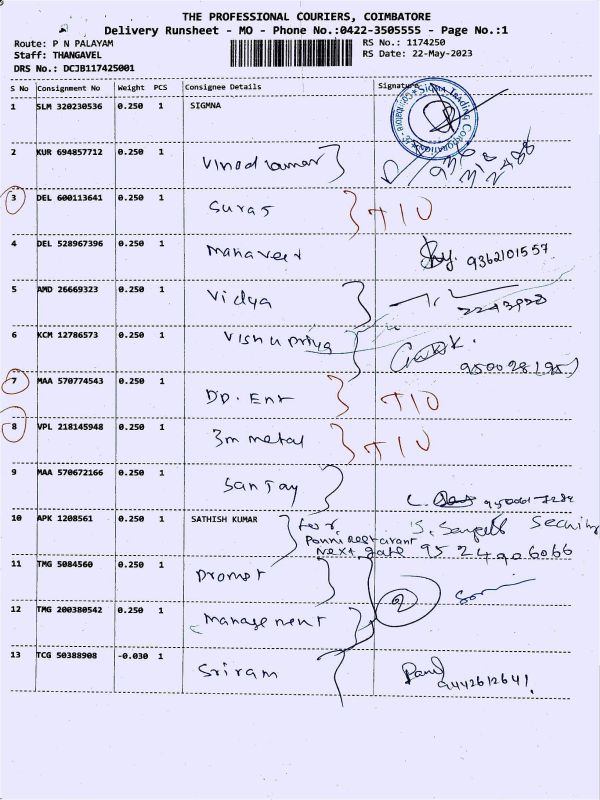 THE PROFESSIONAL COURIERS, COIMBATORE
Delivery Runsheet - MO - Phone No.:0422-3505555 - Page No.:1
Route: P N PALAYAM RS No.: 1174250
Staff: THANGAVEL RS Date: 22-May-2023
DRS No.: DCJB117425001
S No Consignment No Weight PCS Consignee Details Signature
1 SLM 320230536 0.250 1 SIGMNA
Sigma Trading Corporation
Coimbatore
2 KUR 694857712 0.250 1 Vinod kumar
3 DEL 600113641 0.250 1 Suras
4 DEL 528967396 0.250 1 Mahaveer 9362101557
5 AMD 26669323 0.250 1 Vidya
6 KCM 12786573 0.250 1 Vishnu priya
7 MAA 570774543 0.250 1 DD. Ent
8 VPL 218145948 0.250 1 3m metal
9 MAA 570672166 0.250 1 Sanjay
10 APK 1208561 0.250 1 SATHISH KUMAR for Security
Ponni restarant
Next gate 9524906066
11 TMG 5084560 0.250 1 Dromot
12 TMG 200380542 0.250 1 management 2
13 TCG 50388908 -0.030 1 Sriram 9442612641